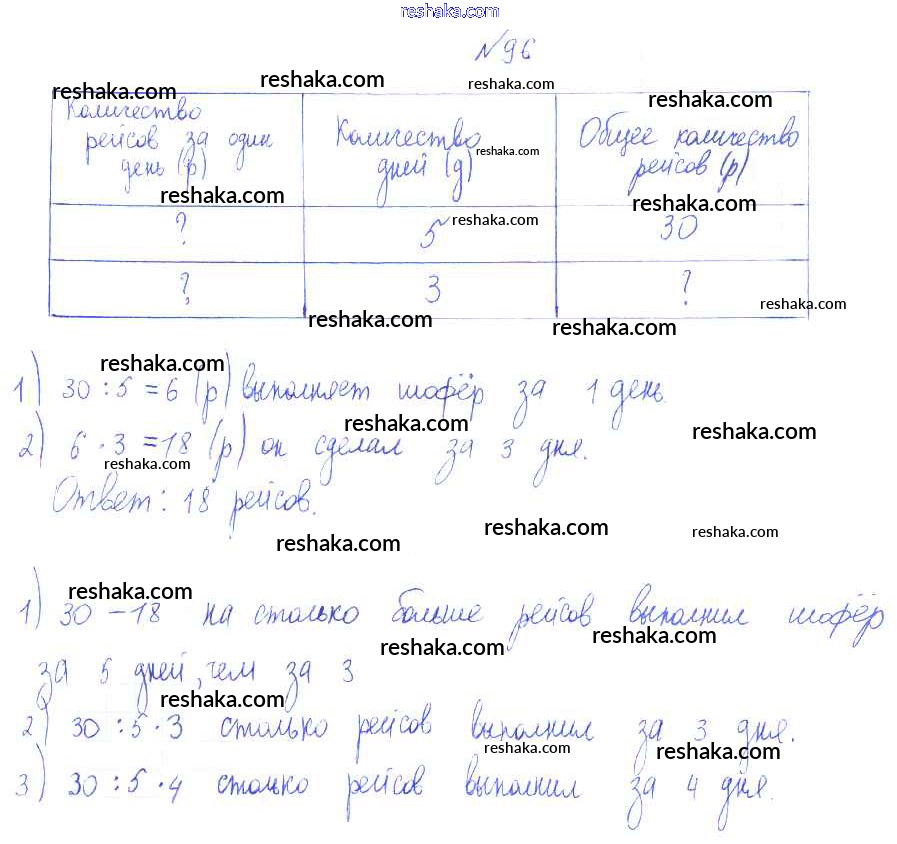 reshaka.com
№96
reshaka.com reshaka.com reshaka.com reshaka.com
Количество рейсов за один день (р)
Количество дней (д)
Общее количество рейсов (р)
reshaka.com reshaka.com reshaka.com
? 5 30
reshaka.com
? 3 ?
reshaka.com reshaka.com reshaka.com
reshaka.com
1) 30 : 5 = 6 (р) выполняет шофёр за 1 день.
reshaka.com reshaka.com
2) 6 · 3 = 18 (р) он сделал за 3 дня.
reshaka.com
Ответ: 18 рейсов.
reshaka.com reshaka.com reshaka.com
reshaka.com
1) 30 – 18 на столько больше рейсов выполнил шофёр
reshaka.com reshaka.com
за 5 дней, чем за 3
reshaka.com
2) 30 : 5 · 3 столько рейсов выполнил за 3 дня.
reshaka.com reshaka.com
3) 30 : 5 · 4 столько рейсов выполнил за 4 дня.